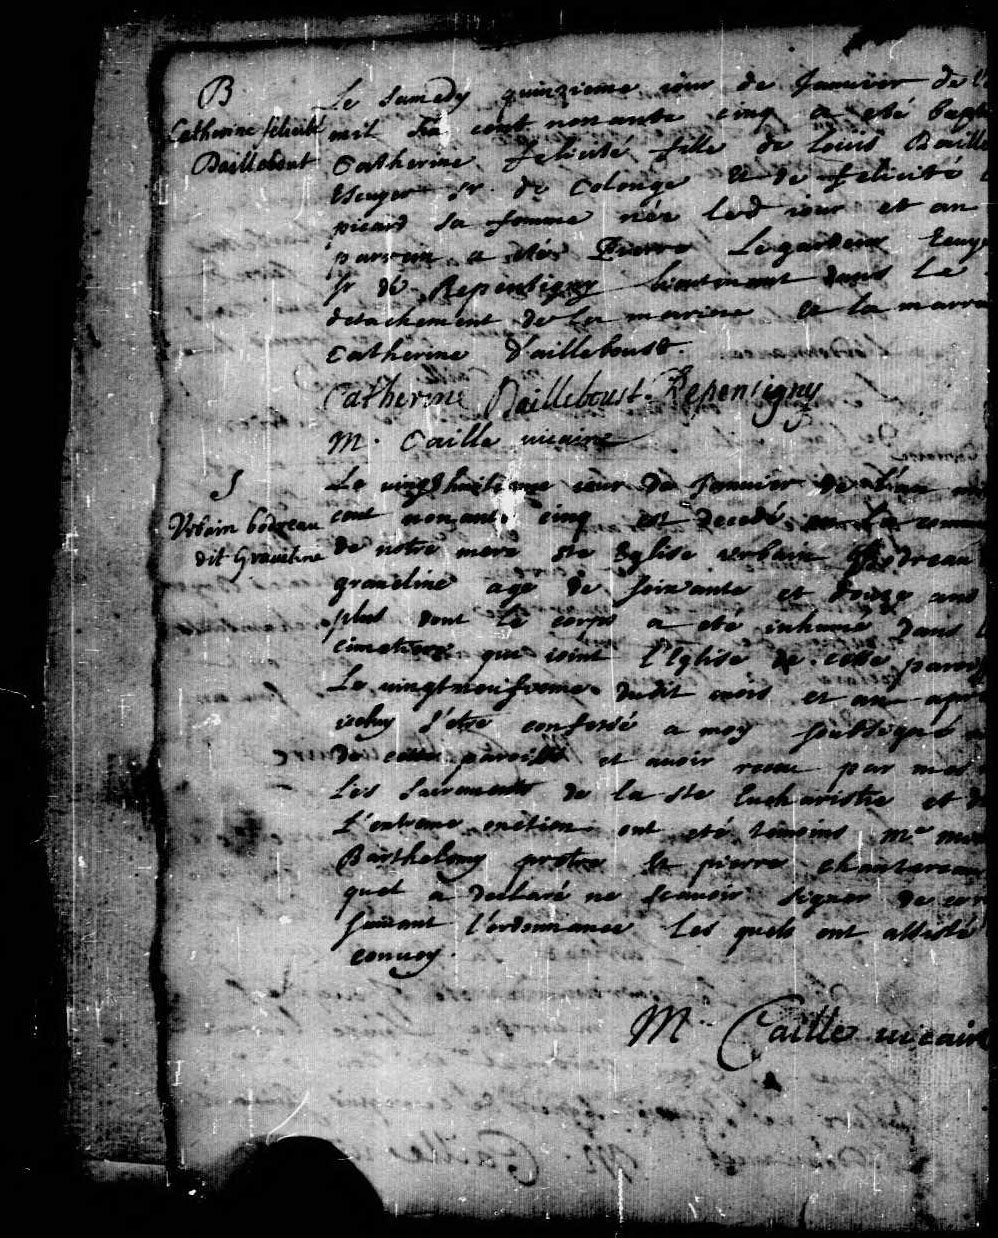 B
Catherine felicité
Daillebout
Le samedy quinzieme iour de Januier de l'
mil six cent nonante cinq a eté bap
Catherine felicité fille de Louis Daille
Escuyer Sr. de Colonge Et de felicité
picard sa femme née led iour et an
parrain a eté Pierre Legardeur Ecuy
Sr de Repentigny lieutenant dans Le
detachement de la marine Et la marra
Catherine D'ailleboust.
Catherine Dailleboust. Repentigny
M. Caille uicaire
S
Vrbain bodreau
dit Graueline
Le uingthuitieme iour de Januier de l'an
cent nonante cinq est decedé en La comm
de notre mere ste Eglise vrbain Bodreau
graueline agé de soixante et douze ans
plus dont Le corps a eté inhumé dans
cimetiere que ioint l'Eglise de cette paroi
Le uingtneufieme dudit mois et an apr
s'etre confessé a moy soussigné
de cette paroisse et auoir receu par mes
Les sacrements de la ste Eucharistie et d
L'extreme onction ont eté temoins Mre
Barthelemy pretre Et pierre chantereau
quel a declaré ne scauoir signer de
suiuant l'ordonnance Les quels ont assisté
conuoy.
M. Caille uicaire